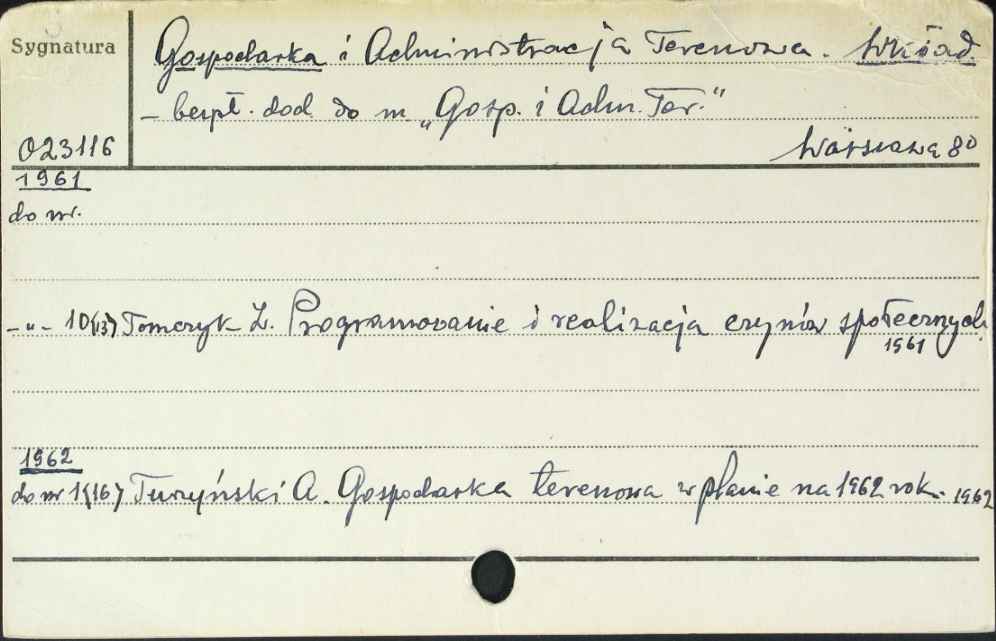 Sygnatura
Gospodarka i Administracja Terenowa. Wkład.
- bezpł. dod. do m. „Gosp. i Adm. Ter."
023116
Warszawa 8°
1961
do nr.
-"- 10(13) Tomczyk Z. Programowanie i realizacja czynów społecznych.
1961
1962
do nr 1(16) Turzyński A. Gospodarka terenowa w planie na 1962 rok. 1962